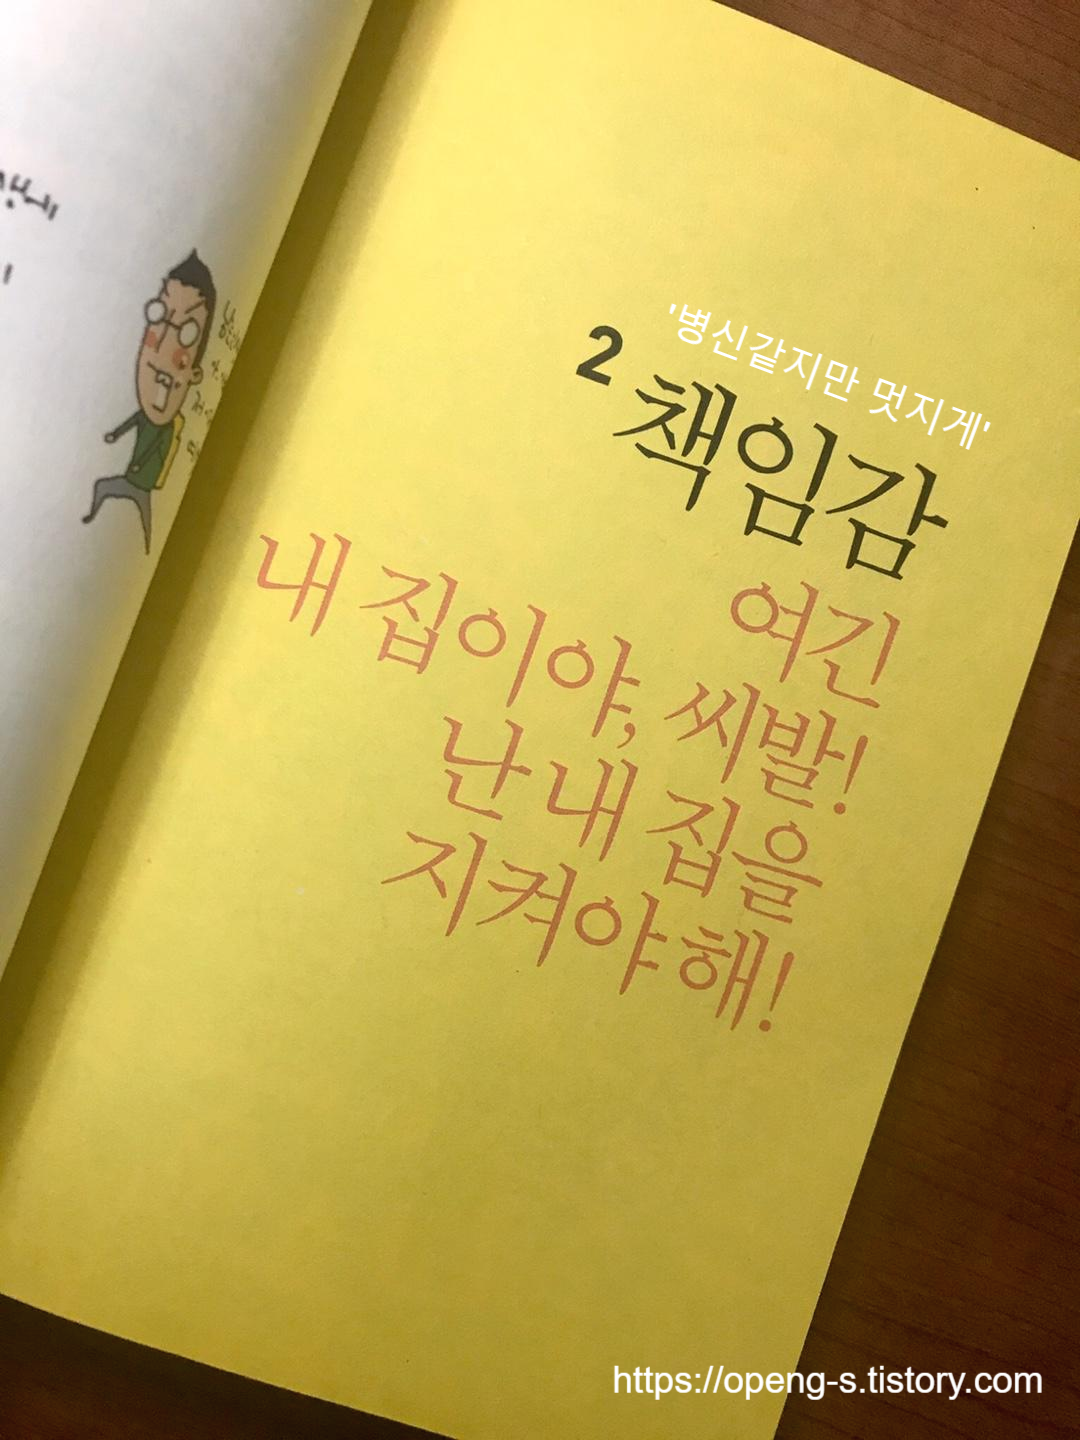 '병신같지만 멋지게'
2 책임감
여긴
내 집이야, 씨발!
난 내 집을
지켜야 해!
https://openg-s.tistory.com